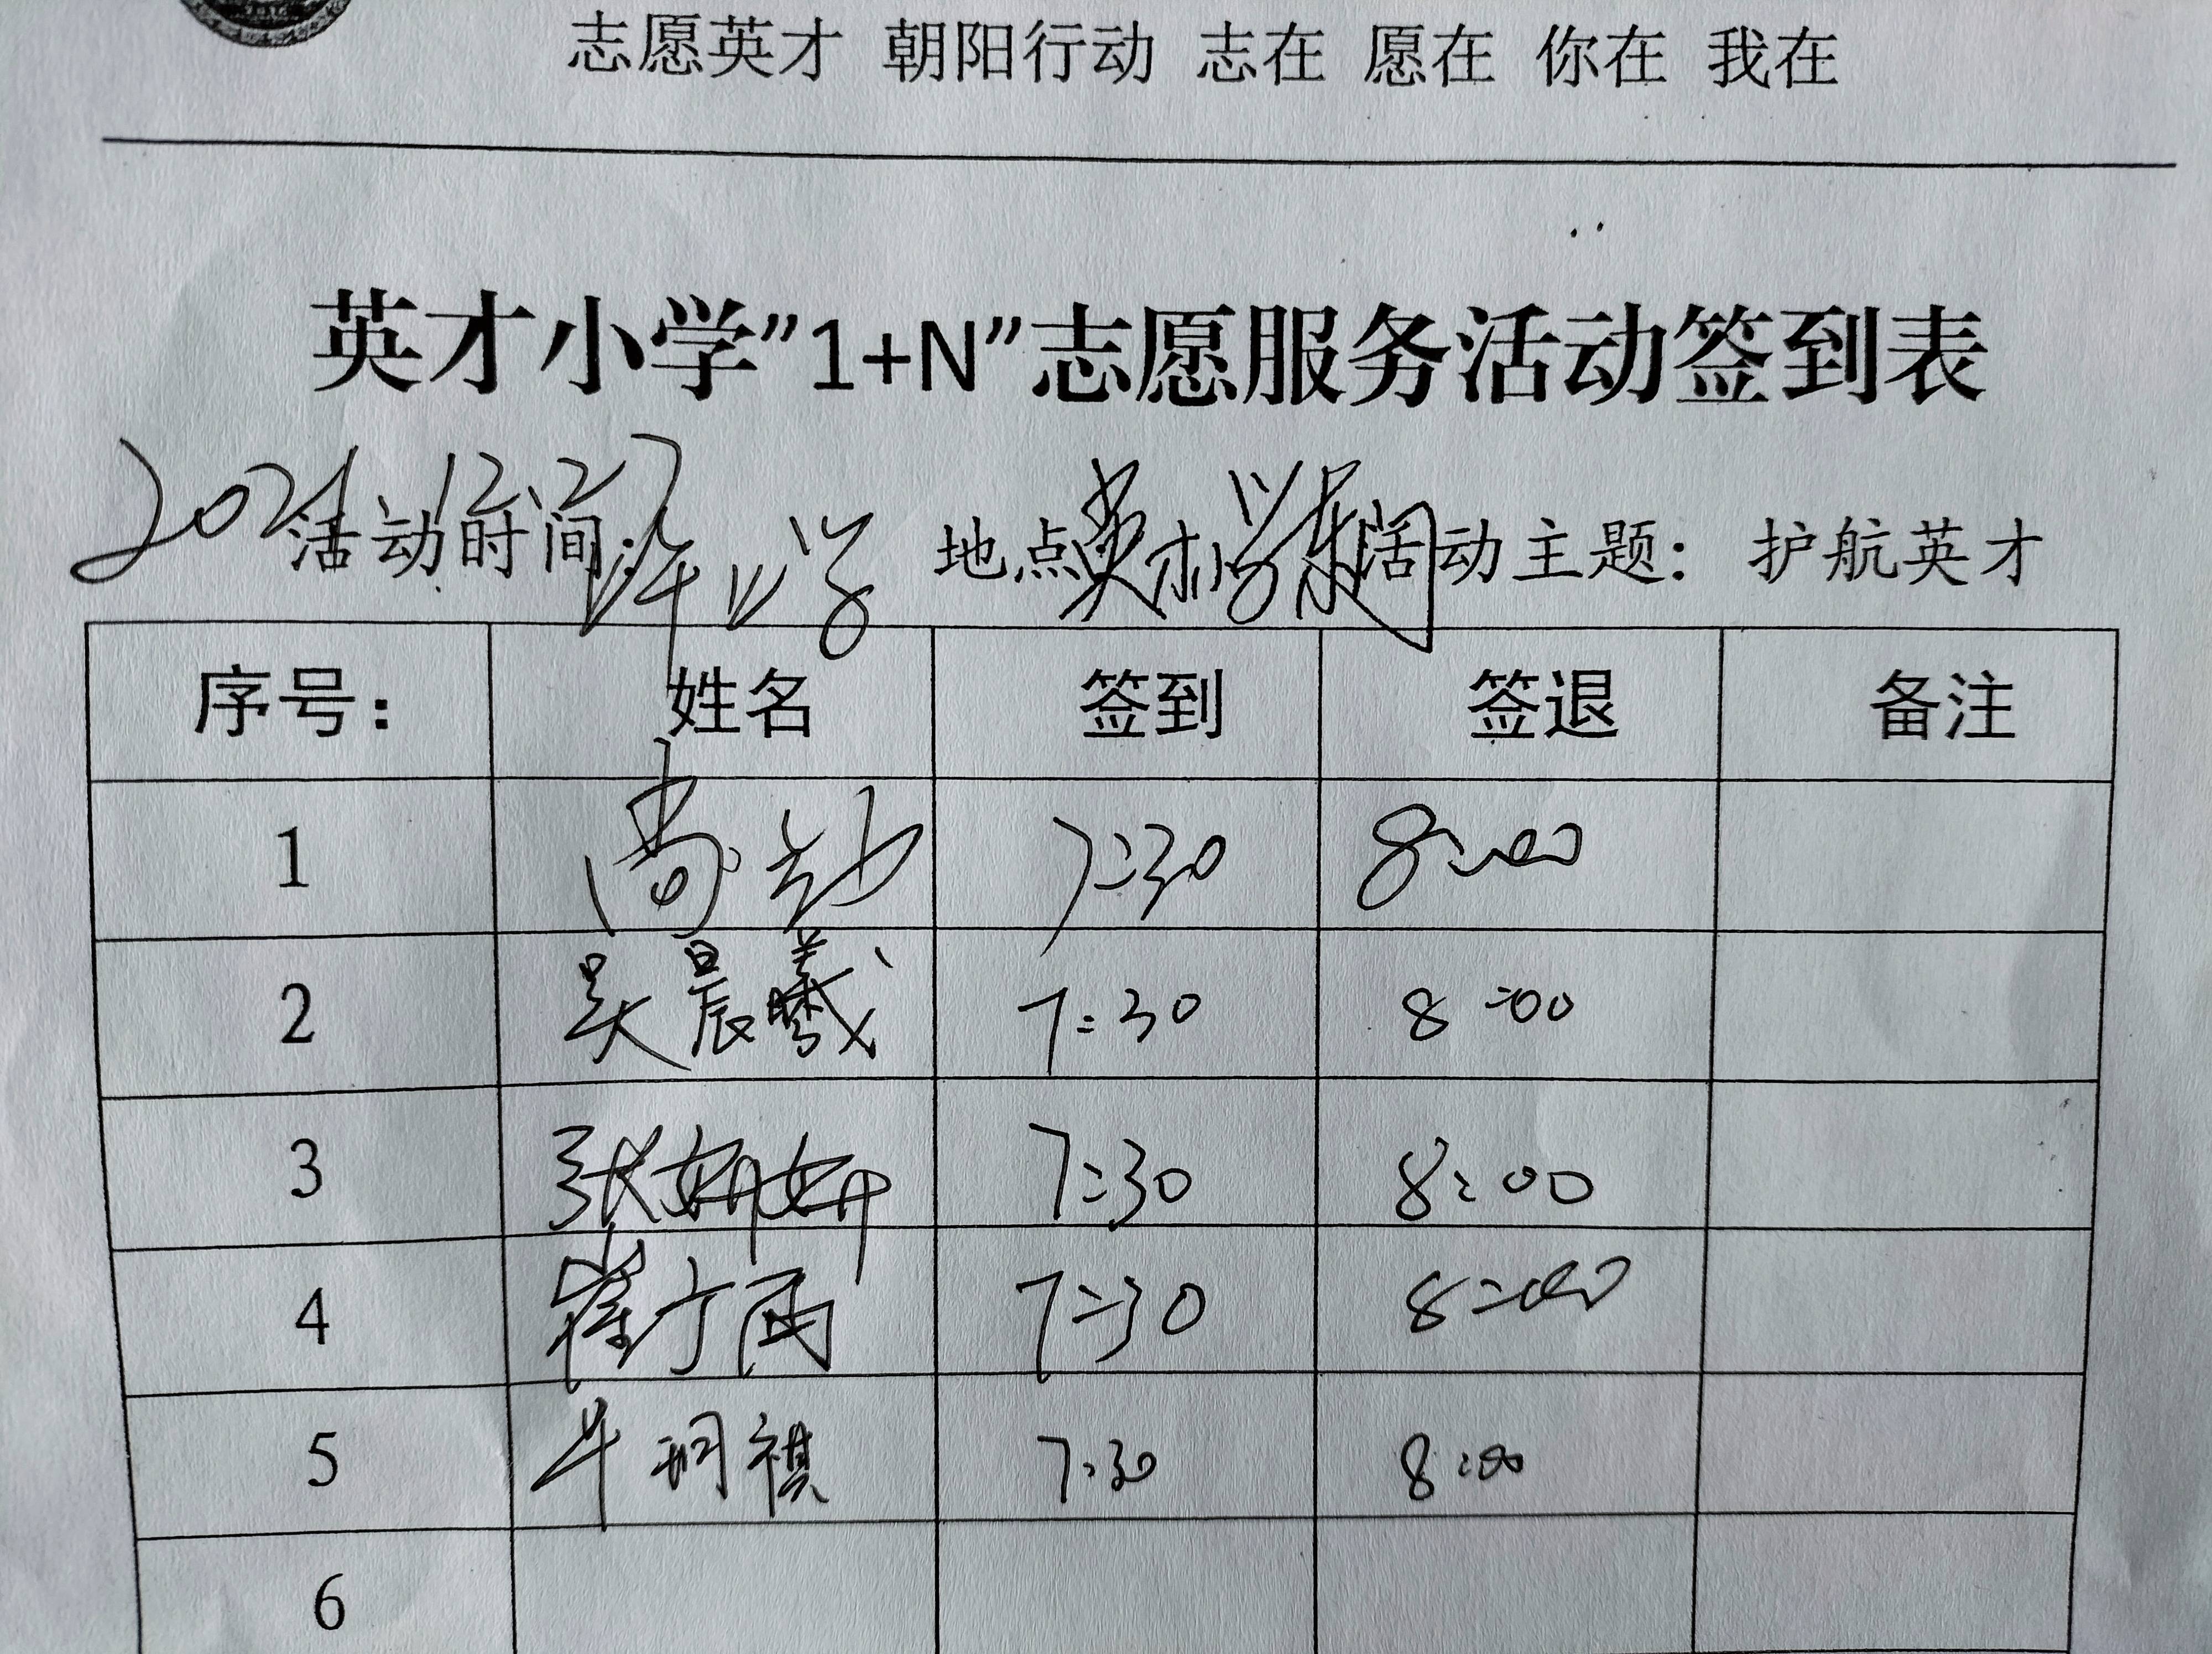 志愿英才 朝阳行动 志在 愿在 你在 我在
英才小学”1+N”志愿服务活动签到表
2021、12、27
活动时间: 地点英才小学东门活动主题: 护航英才
序号: 姓名 签到 签退 备注
1 7:30 8:00
2 吴晨曦 7:30 8:00
3 张姗姗 7:30 8:00
4 崔方雨 7:30 8:00
5 牛玥祺 7:30 8:00
6